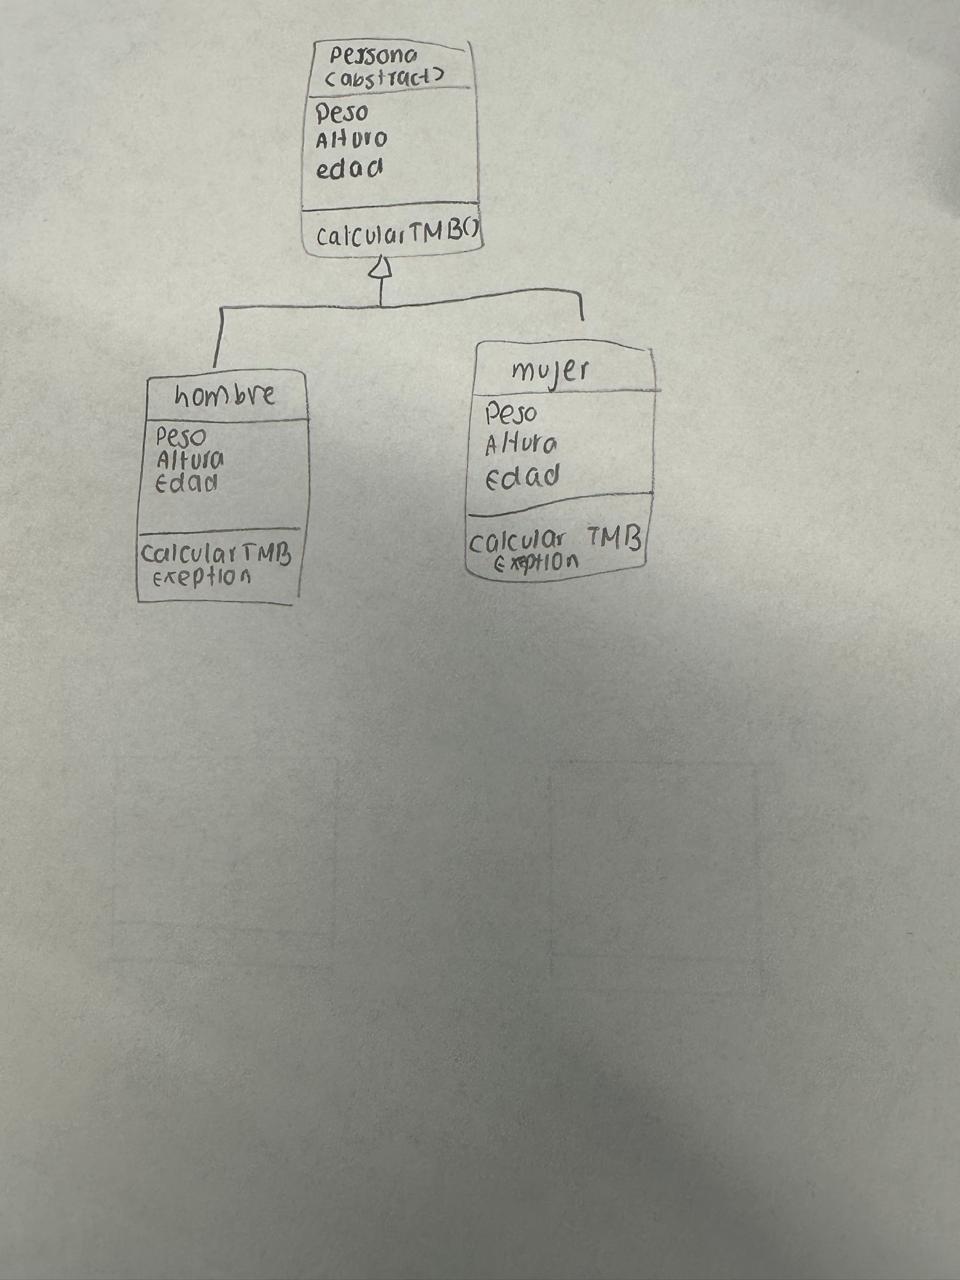 Persona
<abstract>
Peso
Altura
edad
calcularTMB()
hombre
Peso
Altura
Edad
calcularTMB
Exeption
mujer
Peso
Altura
Edad
calcular TMB
Exeption